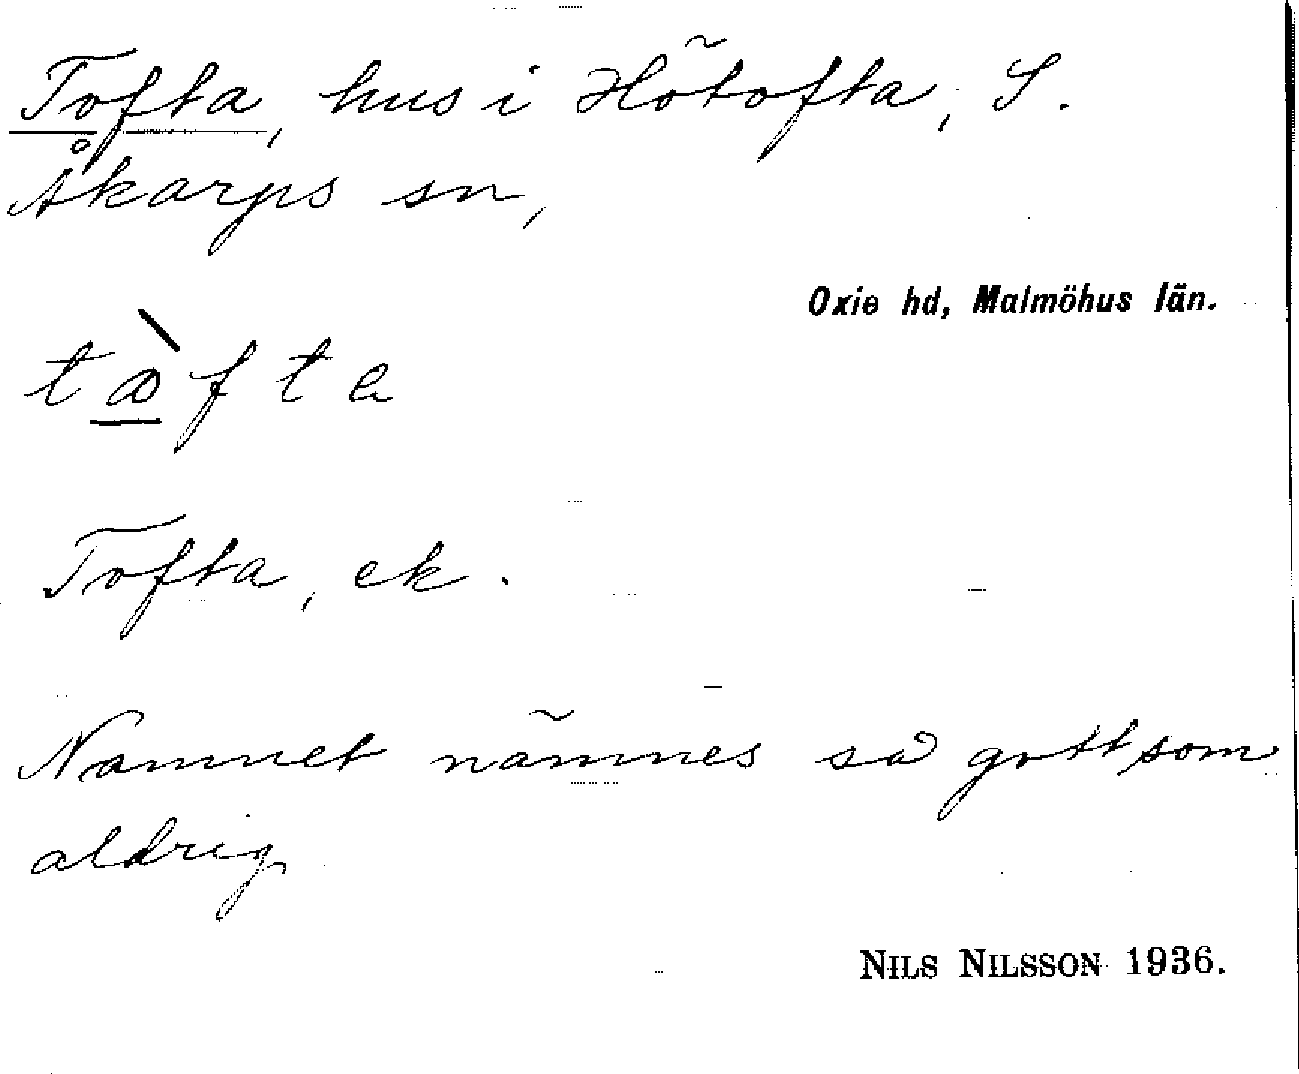 Tofta, hus i Hötofta, S.
Åkarps sn,
Oxie hd, Malmöhus län.
Tofta, ek.
Namnet nämnes så gott som
aldrig
NILS NILSSON 1936.